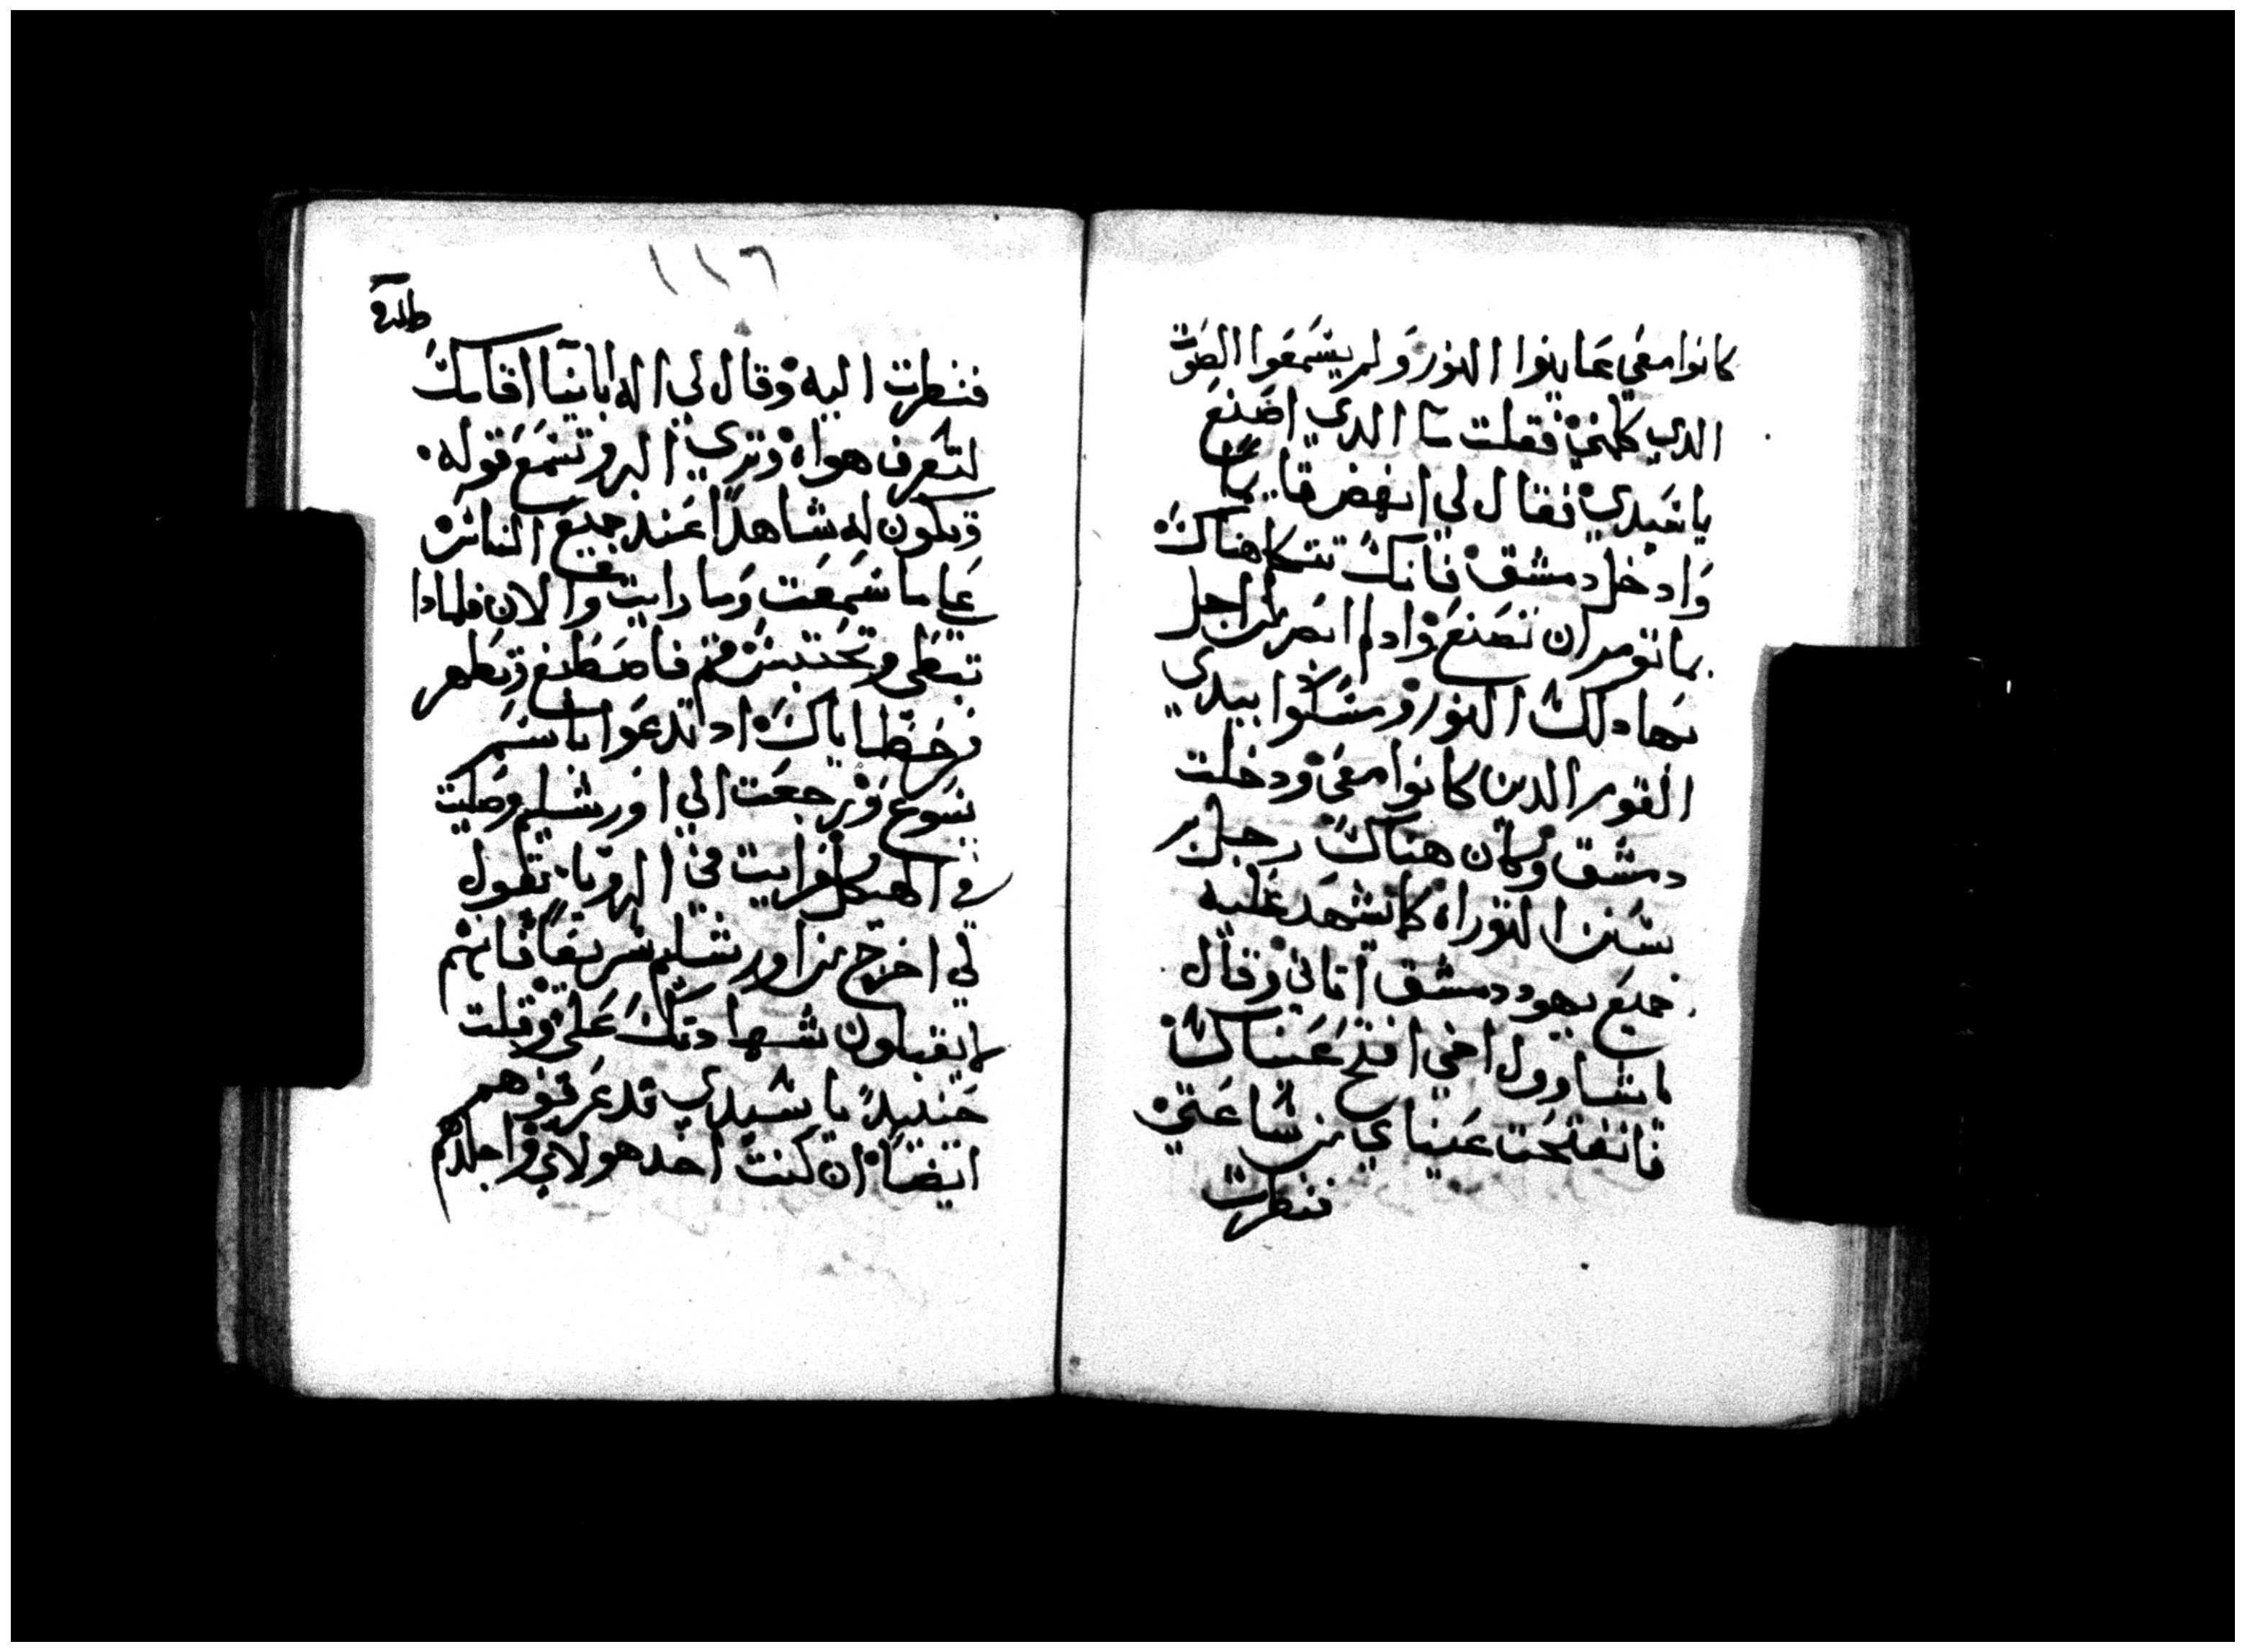 كانوا معي عاينوا النور ولم يسمعوا الصوت
الدي كلمني فقلت ما الدي اصنع
ياسيدي فقال لي انهض قايما
وادخل دمشق فانك تتكلم هناك
بما تومر ان تصنع وادلم ابصر من اجل
بها دلك النور ومسكوا بيدي
القوم الدين كانوا معي ودخلت
دمشق وكان هناك رجل بر
بسنن التوراه كما تشهد عليه
جميع يهود دمشق اتاني وقال
ياشاوول اخي افتح عيناك
فانفتحت عيناي من ساعتي
فنظرت
١١٦
فنظرت اليه وقال لي اله ابانيا اقامك
لتعرف هواه وتري البر وتسمع قوله
وتكون له شاهدا عند جميع الناس
علي ما سمعت وما رايت والان فلمادا
تبطي وتحتبس قم فاصطبغ وتطهر
من خطاياك اد تدعوا باسم
يسوع ورجعت الي اورشليم وصليت
في الهيكل فرايت في الرويا تقول
لي اخرج من اورشليم سريعا فانهم
لا يقبلون شهادتك علي وقلت
حينيد يا سيدي قد عرفوهم
ايضا ان كنت اخد هولاي واجلدهم